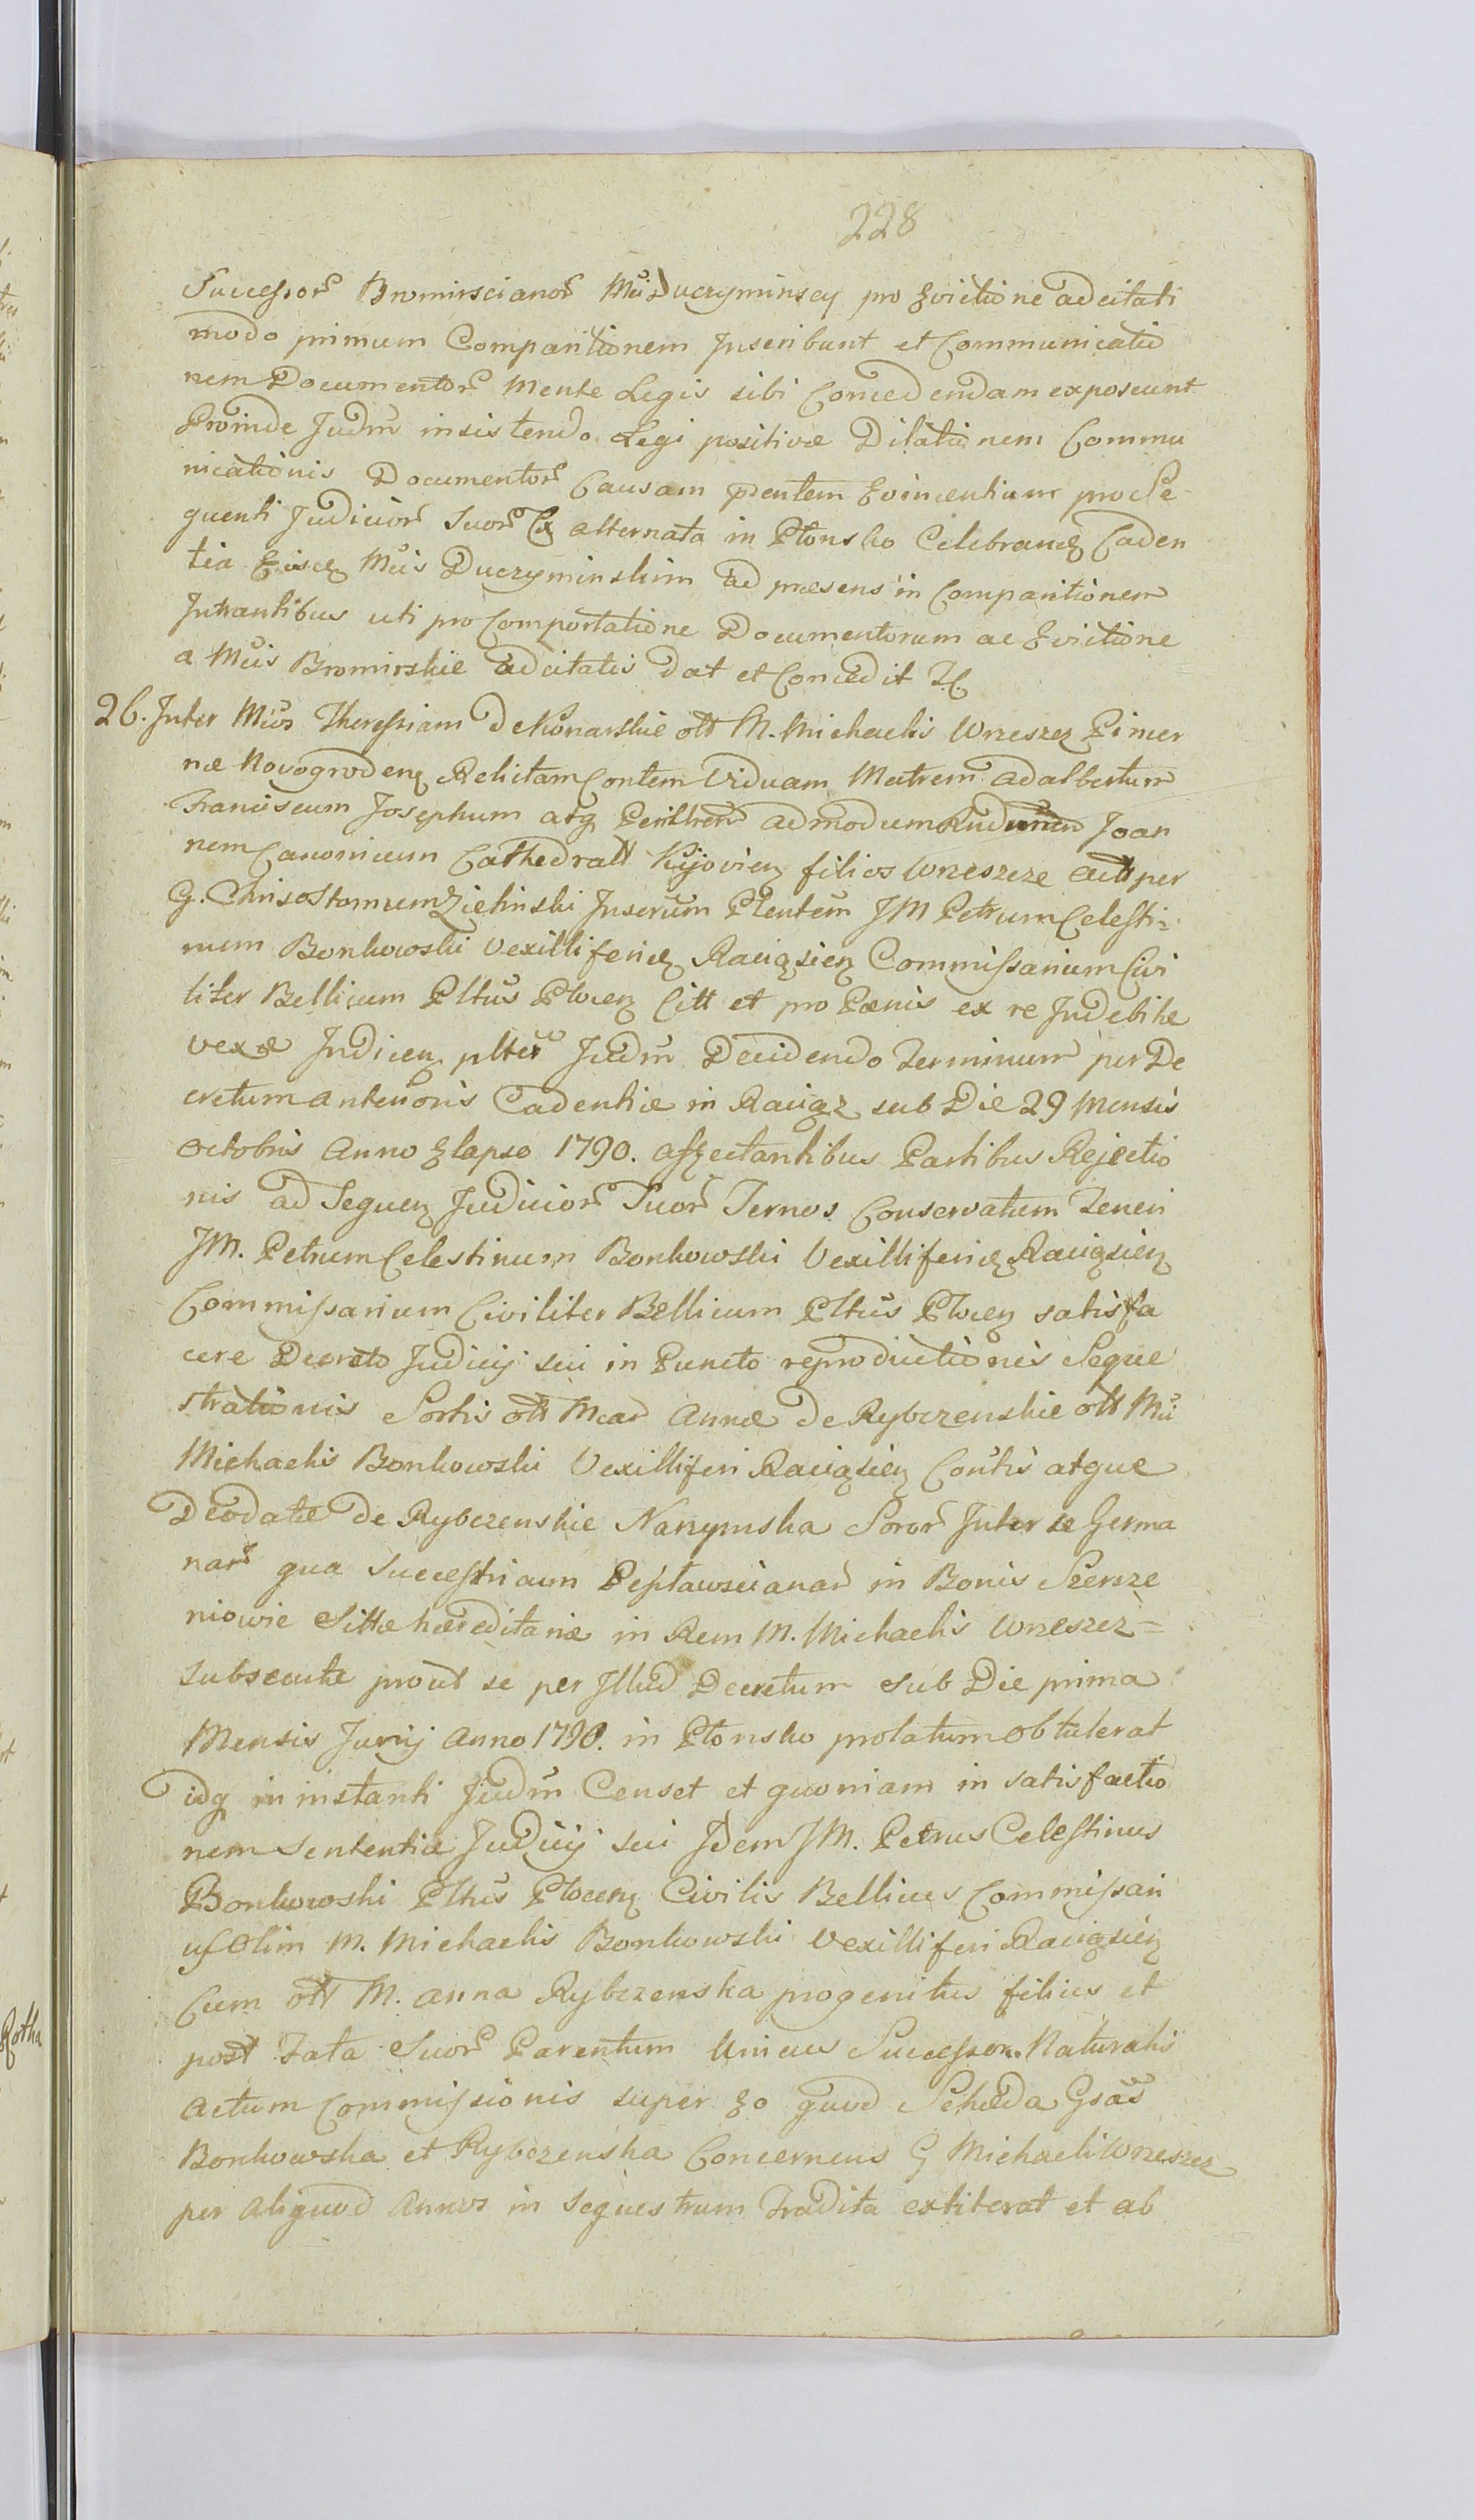 228
Successor Bromirscianor Mci Duczyminscy pro Evictione adcitati
modo primum Comparitionem Inscribunt et Communicatio
nem Documentor Mente Legis sibi Concedendam exposcunt
Proinde Judm insistendo Legi positivæ Dilationem Commu
nicationis Documentor Causam pntem Evincentium pro Se-
quenti Judicior Suor Ex alternata in Płonsko Celebrand Caden
tia Eisd Mcis Duczyminskim ad præsens in Comparitionem
Intrantibus uti pro Comportatione Documentorum ac Evictione
a Mcis Bromirskie adcitatis dat et Concedit
26. Inter Mcos Theressiam de Konarskie olt M. Michaelis Wreszcz Pincer
næ Novogroden Relictam Contem Viduam Matrem Adalbertum
Franciscum Josephum atq Perillrem admodum Rndum Joan
nem Canonicum Cathedrall Kijovien filios Wreszcze Actt per
G. Chrisostomum Zielinski Inserum Plentem JM Petrum Celesti=
num Bonkowski Vexilliferid Raciązien Commissarium Civi
liter Bellicum Pltus Płocen Citt et pro Pænis ex re Indebitæ
vexæ Indicen plter Judm Decidendo Terminum per De
cretum anterioris Cadentiæ in Raciąz sub Die 29 Mensis
Octobris Anno Elapso 1790. affectantibus Partibus Rejectio
nis ad Sequen Judicior Suor Ternos Conservatum Teneri
JM. Petrum Celestinum Bonkowski Vexilliferid Raciązien
Commissarium Civiliter Bellicum Pltus Płocen satisfa
cere Decreto Judicij sui in Puncto reproductionis Seque
strationis Sortis olt Mcar Annæ de Rybczenskie olt Mci
Michaelis Bonkowski Vexilliferi Raciązien Contis atque
Deodatæ de Rybczenskie Narzymska Soror Inter se Germa
nar qua Successricum Pepławscianar in Bonis Szenze
niowie Sittæ hæreditariæ in Rem M. Michaelis Wreszcz=
subsecutæ prout se per Illud Decretum sub Die prima
Mensis Junij Anno 1790. in Płonsko prolatum obtulerat
idq in instanti Judm Censet et quoniam in satisfactio
nem Sententiæ Judicij sui Idem JM. Petrus Celestinus
Bonkowski Pltus Płocen Civilis Bellicus Commissari
us Olim M. Michaelis Bonkowski Vexilliferi Raciązien
Cum olt M. Anna Rybczenska progenitus filius et
post Fata Suor Parentum Unicus Successor Naturalis
Actum Commissionis super Eo quod Scheda Gsas
Bonkowska et Rybczenska Concernens G Michaeli Wreszcz
per aliquod Annos in sequestrum Tradita extiterat et ab
Rotha